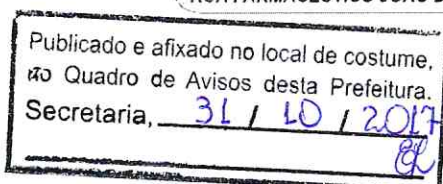 Publicado e afixado no local de costume,
no Quadro de Avisos desta Prefeitura.
Secretaria, 31 / 10 / 2017